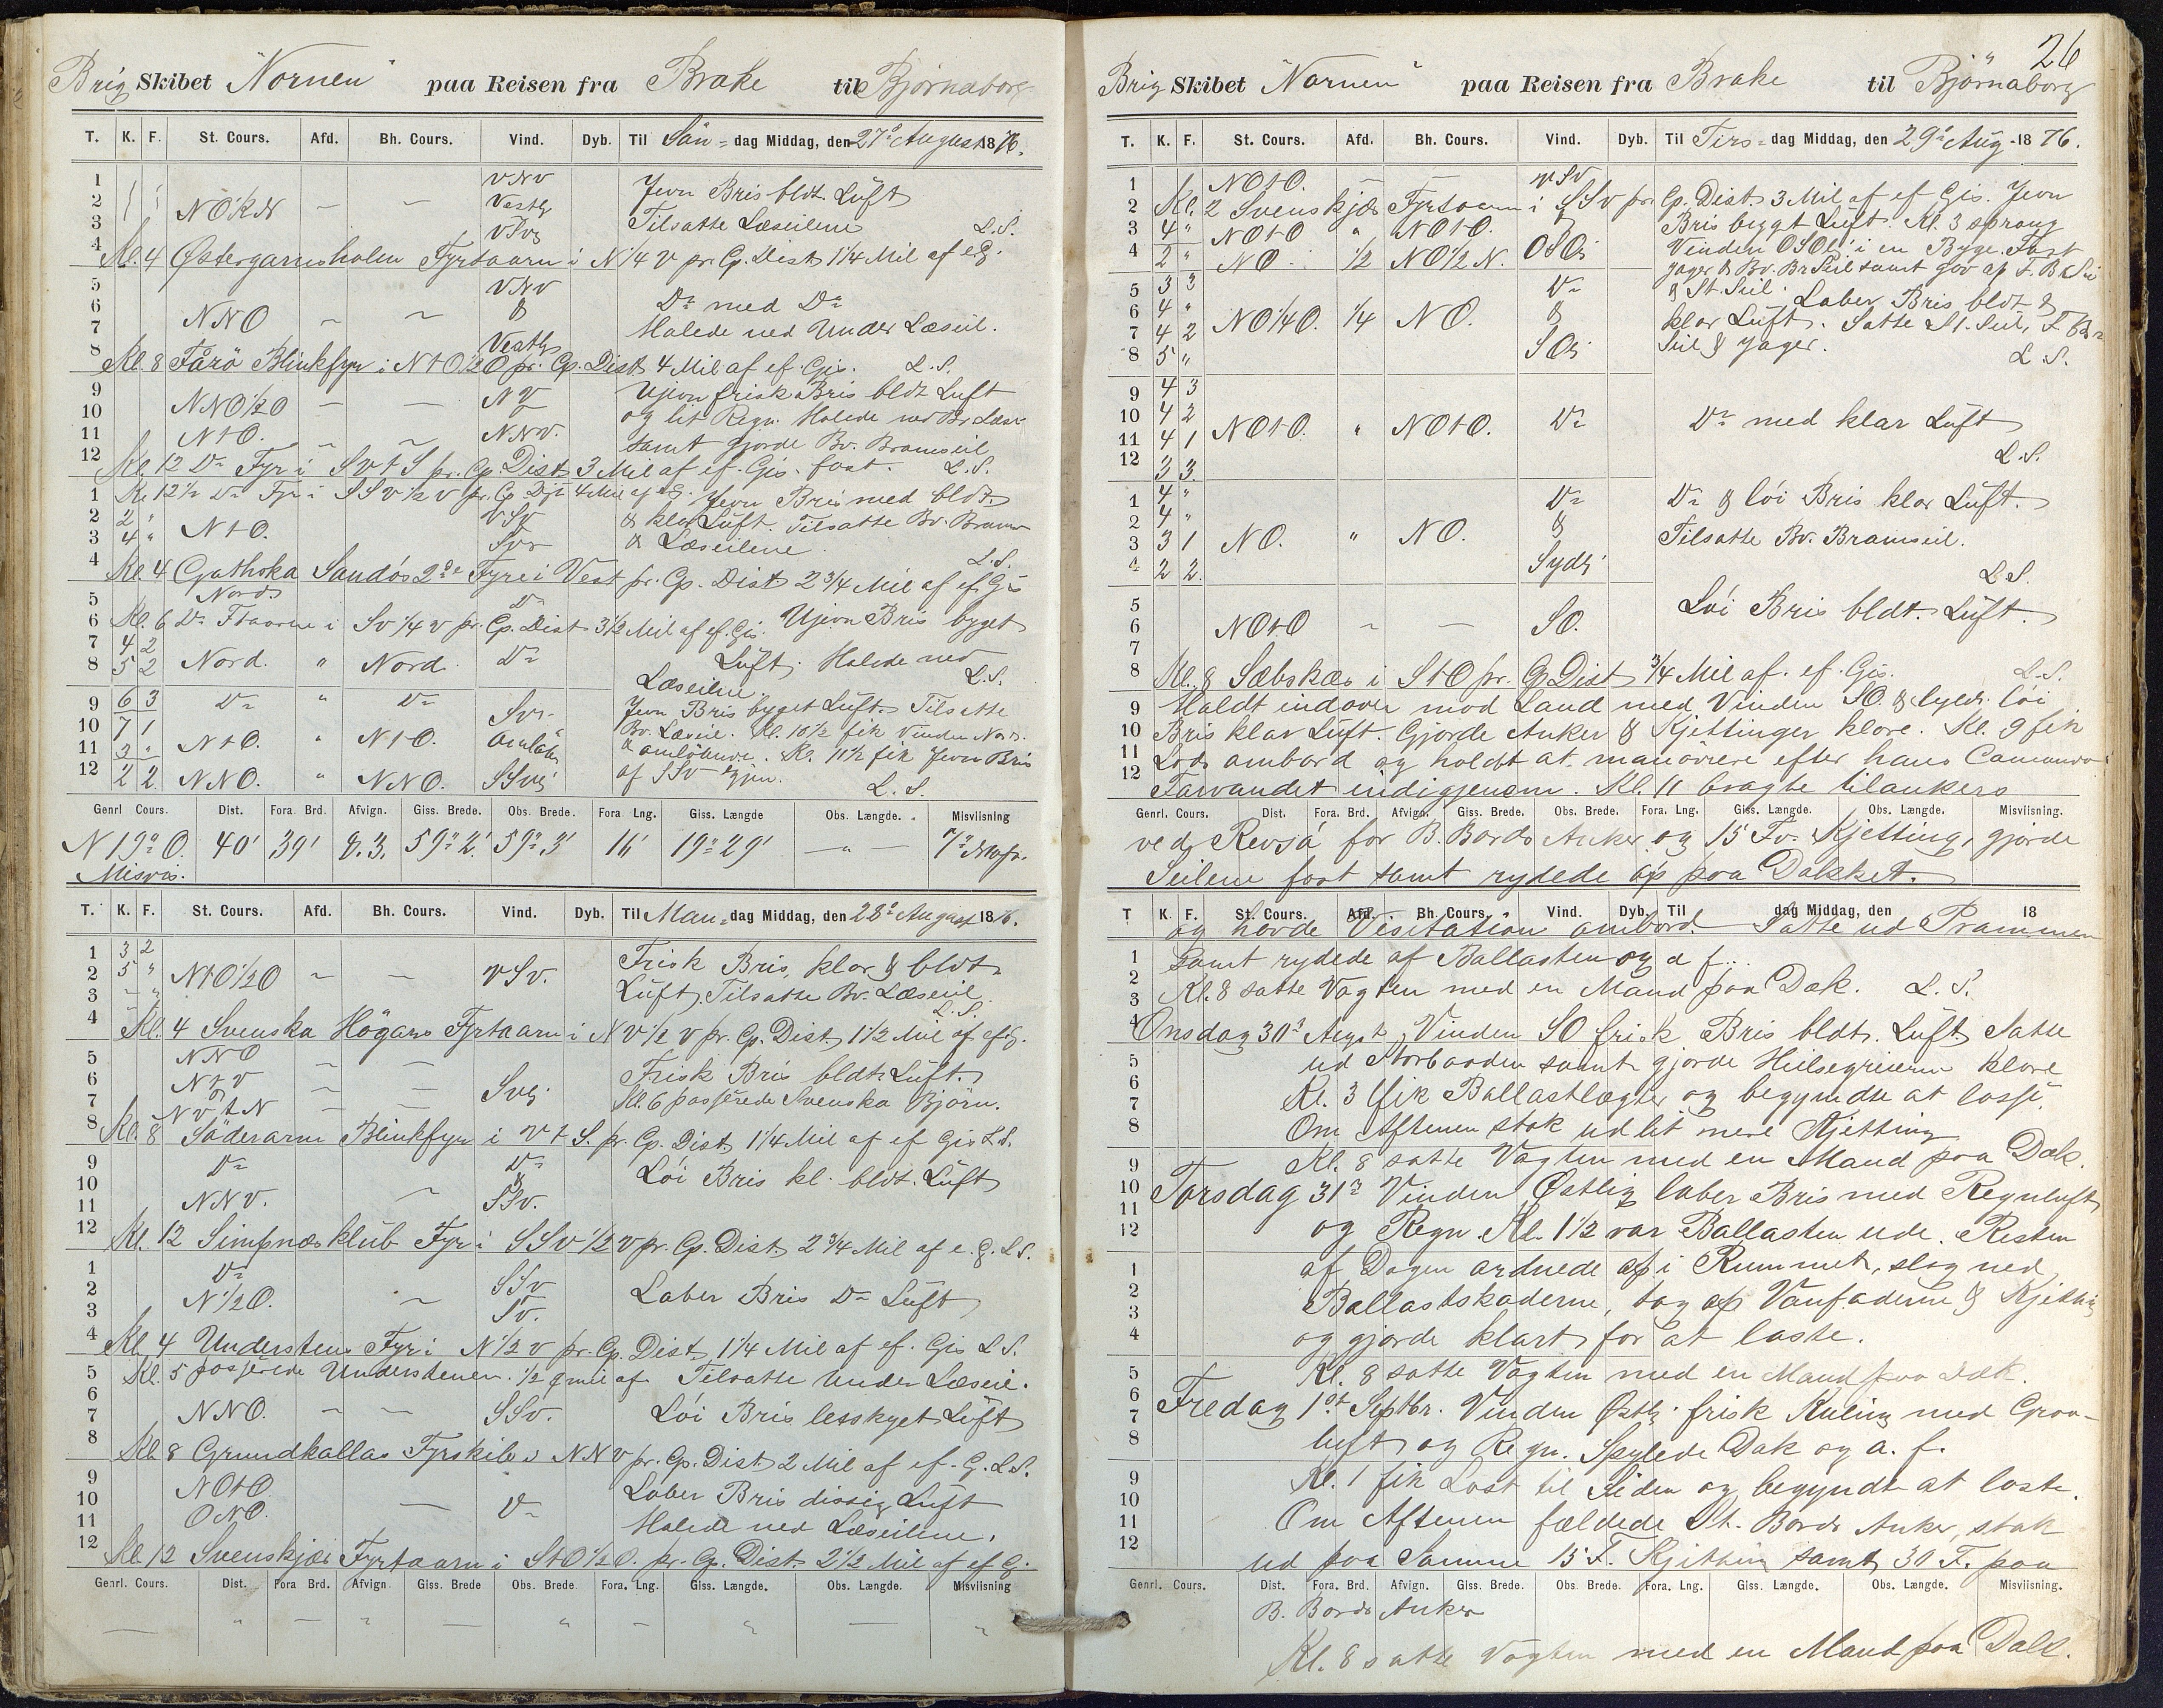 Brig Skibet "Nornen" paa Reisen fra Brake til Bjørnaborg
T. K. F. St. Cours. Afd. Bh. Cours. Vind. Dyb. Til Søn=dag Middag, den 27de August 1876.
1 VNV Jevn Bris bldt. Luft
2 NOtN — — Vestlg Tilsatte Læseilene
3 VSvg L.S.
4 Kl. 4 Østergarnsholm Fyrtaarn i N 1/4 V pr. Cp. Dist. 1 1/4 Mil af efG.
5 VNV Do med Do
6 NNO — — &
7 Halede ned Under Læseil.
8 Vestlg
Kl. 8 Fårö Blinkfyr i NtO 1/2 O pr. Cp. Dist. 4 Mil af ef. Gis. L.S.
9 NNO 1/2 O — — NV Ujevn frisk Bris bldt Luft
10 og lit Regn. Halede ned Br. Læse
11 NtO. — — NNV. samt gjorde Bv. Bramseil
12 Kl. 12 Do Fyr i SvtS pr. Cp. Dist 3 Mil af ef. Gis. fast. L.S.
1 Kl. 12 1/2 Do Fyr i SSv 1/2 v pr. Cp. Dist 4 Mil af efG. Jevn Bris med bldt.
2 2 " VSv & klar Luft. Tilsatte Bv. Bram
3 4 " NtO. Svr & Læseilene.
4 L.S.
Kl. 4 Gothska Sandös 2de Fyre i Vest pr. Cp. Dist 2 3/4 Mil af ef Gis
5 Nord. Do
6 Kl. 6 Do Ftaarne i Sv 1/4 v pr. Cp. Dist 3 1/2 Mil af ef. Gis. Ujevn Bris byget
7 4 2 Luft. Halede ned
8 5 2 Nord. " Nord. Do Læseilene L.S.
9 6 3 Do " Do Svr. Jevn Bris byget Luft. Tilsatte
10 7 1 Bv. Læseil. Kl. 10 1/2 fik Vinden Nord.
11 3 " NtO. " NtO. Omløbe & omløbende. Kl. 11 1/2 fik Jevn Bris
12 2 2. NNO. " NNO. SSvg af SSv igjen. L.S.
Genrl Cours. Dist. Fora. Brd. Afvign. Giss. Brede. Obs. Brede. Fora Lng. Giss. Længde Obs. Længde. Misviisning
N 19° O. 40' 39' 8.3. 59° 2'. 59° 3' 16' 19° 29' — " —
Misvis.
T. K. F. St. Cours. Afd. Bh. Cours. Vind. Dyb. Til Man=dag Middag, den 28de August 1876.
1 3 2 Frisk Bris, klar & bldt.
2 5 " NtO 1/2 O — — VSv. Luft. Tilsatte Bv. Læseil
3 — " L.S.
4 Kl. 4 Svenska Högarne Fyrtaarn i NV 1/2 V pr. Cp. Dist. 1 1/2 Mil af efG.
5 NNO — — Frisk Bris bldt Luft.
6 NtV — — Svg. Kl. 6 passerede Svenska Björn.
7 NVtN — —
8 Kl. 8 Söderarm Blinkfyr i VtS. pr. Cp. Dist. 1 1/4 Mil af ef Gis L.S.
9 Do Do Löi Bris kl. bldt. Luft
10 &
11 NNV. — SSv.
12 Kl. 12 Simpnæsklub Fyr i SSv 1/2 v pr. Cp. Dist. 2 3/4 Mil af e. G. L.S.
1 Do SSv
2 N 1/2 O. — Laber Bris Do Luft
3 Sv.
4 Kl. 4 Understens Fyr i N 1/2 v pr. Cp. Dist. 1 1/4 Mil af ef. Gis L.S.
5 Kl. 5 passerede Understenen. 1/2 qmil af. Tilsatte Under Læseil.
6
7 NNO. — — SSv. Löi Bris letskyet Luft
8 Kl. 8 Grundkallas Fyrskib i NNV pr. Cp. Dist. 2 Mil af ef. G. L.S.
9 NOtO. Laber Bris dissig Luft
10 ONO. — Do
11 Halede ned Læseilene.
12 Kl. 12 Svenskjær Fyrtaarn i StO 1/2 O. pr. Cp. Dist. 2 1/2 Mil af ef G.
Genrl. Cours. Dist. Fora Brd. Afvign Giss. Brede Obs. Brede. Fora. Lng. Giss. Længde. Obs. Længde. Misviisning
26
Brig Skibet "Nornen" paa Reisen fra Brake til Björnaborg
T. K. F. St. Cours. Afd. Bh. Cours. Vind. Dyb. Til Tirs=dag Middag, den 29de Aug. 1876.
1 NOtO. — — VSv
2 Kl. 2 Svenskjær Fyrtaarn i SSv pr. Cp. Dist. 3 Mil af ef Gis. Jevn
3 4 " NOtO " NOtO. & Bris bygt Luft. Kl. 3 sprang
4 2 " NO. 1/2 NO 1/2 N. OSOlg Vinden OSOlg i en Byge. Fast
Jager & Bv. Br Seil samt gav af F. Br. Sei
5 3 3 Do & St. Seil. Laber Bris bldt &
6 4 " & klar Luft. Satte St. Seil, F. Br.
7 4 2 NO 1/4 O. 1/4 NO. Seil & Jager.
8 5 " SOlg L.S.
9 4 3
10 4 2 NOtO. " NOtO. Do Do med klar Luft
11 4 1
12 3 3. L.S.
1 4 " Do Do & löi Bris klar Luft.
2 4 " &
3 3 1 NO. " NO. Tilsatte Bv. Bramseil.
4 2 2. Sydlg L.S.
5 Löi Bris bldt. Luft.
6 NOtO — — SO.
7
8 Kl. 8 Sæbskær i StO pr. Cp Dist 3/4 Mil af. ef. Gis. L.S.
9 Holdt indover mod Land med Vinden SO. & Sydl. löi
10 Bris klar Luft. Gjorde Anker & Kjettinger klare. Kl. 9 fik
11 Lods ombord og holdt at manövrere efter hans Comando
12 Farvandet indigjenem. Kl. 11 bragte tilankers
Genrl. Cours. Dist. Fora. Brd. Afvign. Giss. Brede. Obs. Brede. Fora. Lng. Giss. Længde. Obs. Længde. Misviisning.
ved Revsö for B. Bords Anker og 15 Fv. Kjetting, gjorde
Seilene fast samt rydede op paa Dækket.
T K. F. St. Cours. Afd. Bh. Cours. Vind. Dyb. Til dag Middag, den 18
og havde Visitation ombord. Satte ud Prammen
1 samt rydede af Ballasten og a f..
2
3 Kl. 8 satte Vagten med en Mand paa Dæk. L.S.
4 Onsdag 30te Augst. Vinden SO frisk Bris bldt. Luft. Satte
5 ud Storbaaden samt gjorde Heisegreierne klare
6 Kl. 3 fik Ballastlægter og begyndte at losse.
7
8 Om Aftenen stak ud lit mere Kjetting
9 Kl. 8 satte Vagten med en Mand paa Dæk.
10 Torsdag 31te Vinden Østlig laber Bris med Regnluft
11
12 og Regn. Kl. 1 1/2 var Ballasten ude. Resten
1 af Dagen ordnede op i Rummet, slog ned
2 Ballastskoderne, tog op &
3
4 og gjorde klart for at laste.
5 Kl. 8 satte Vagten med en Mand paa Dæk.
6 Fredag 1st Septbr. Vinden Østlg. frisk Kuling med Graa-
7
8 luft og Regn. Spylede Dæk og a. f.
9 Kl. 1 fik Last til Siden og begyndte at laste.
10
11 Om Aftenen fældede St. Bords Anker, stak
12 ud paa Samme 15 F. Kjetting samt 30 F. paa
Genrl. Cours. Dist. Fora. Brd. Afvign. Giss. Brede. Obs. Brede. Fora. Lng. Giss. Længde. Obs. Længde. Misviisning.
B. Bords Anker
Kl. 8 satte Vagten med en Mand paa Dæk.